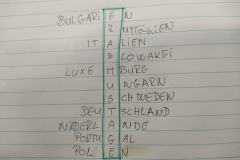 BULGARIEN
RUMÄNIEN
ITALIEN
SLOWAKEI
LUXEMBURG
UNGARN
SCHWEDEN
DEUTSCHLAND
NIEDERLANDE
PORTUGAL
POLEN